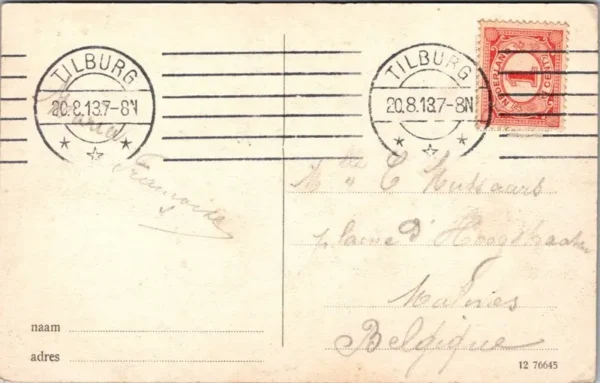 TILBURG
20.8.13.7-8N
TILBURG
20.8.13.7-8N
NEDERLAND
1
Maria
Françoise
Mlle C Hussaars
plaine d'Hoogstraaten
Malines
Belgique
naam
adres
12 76645